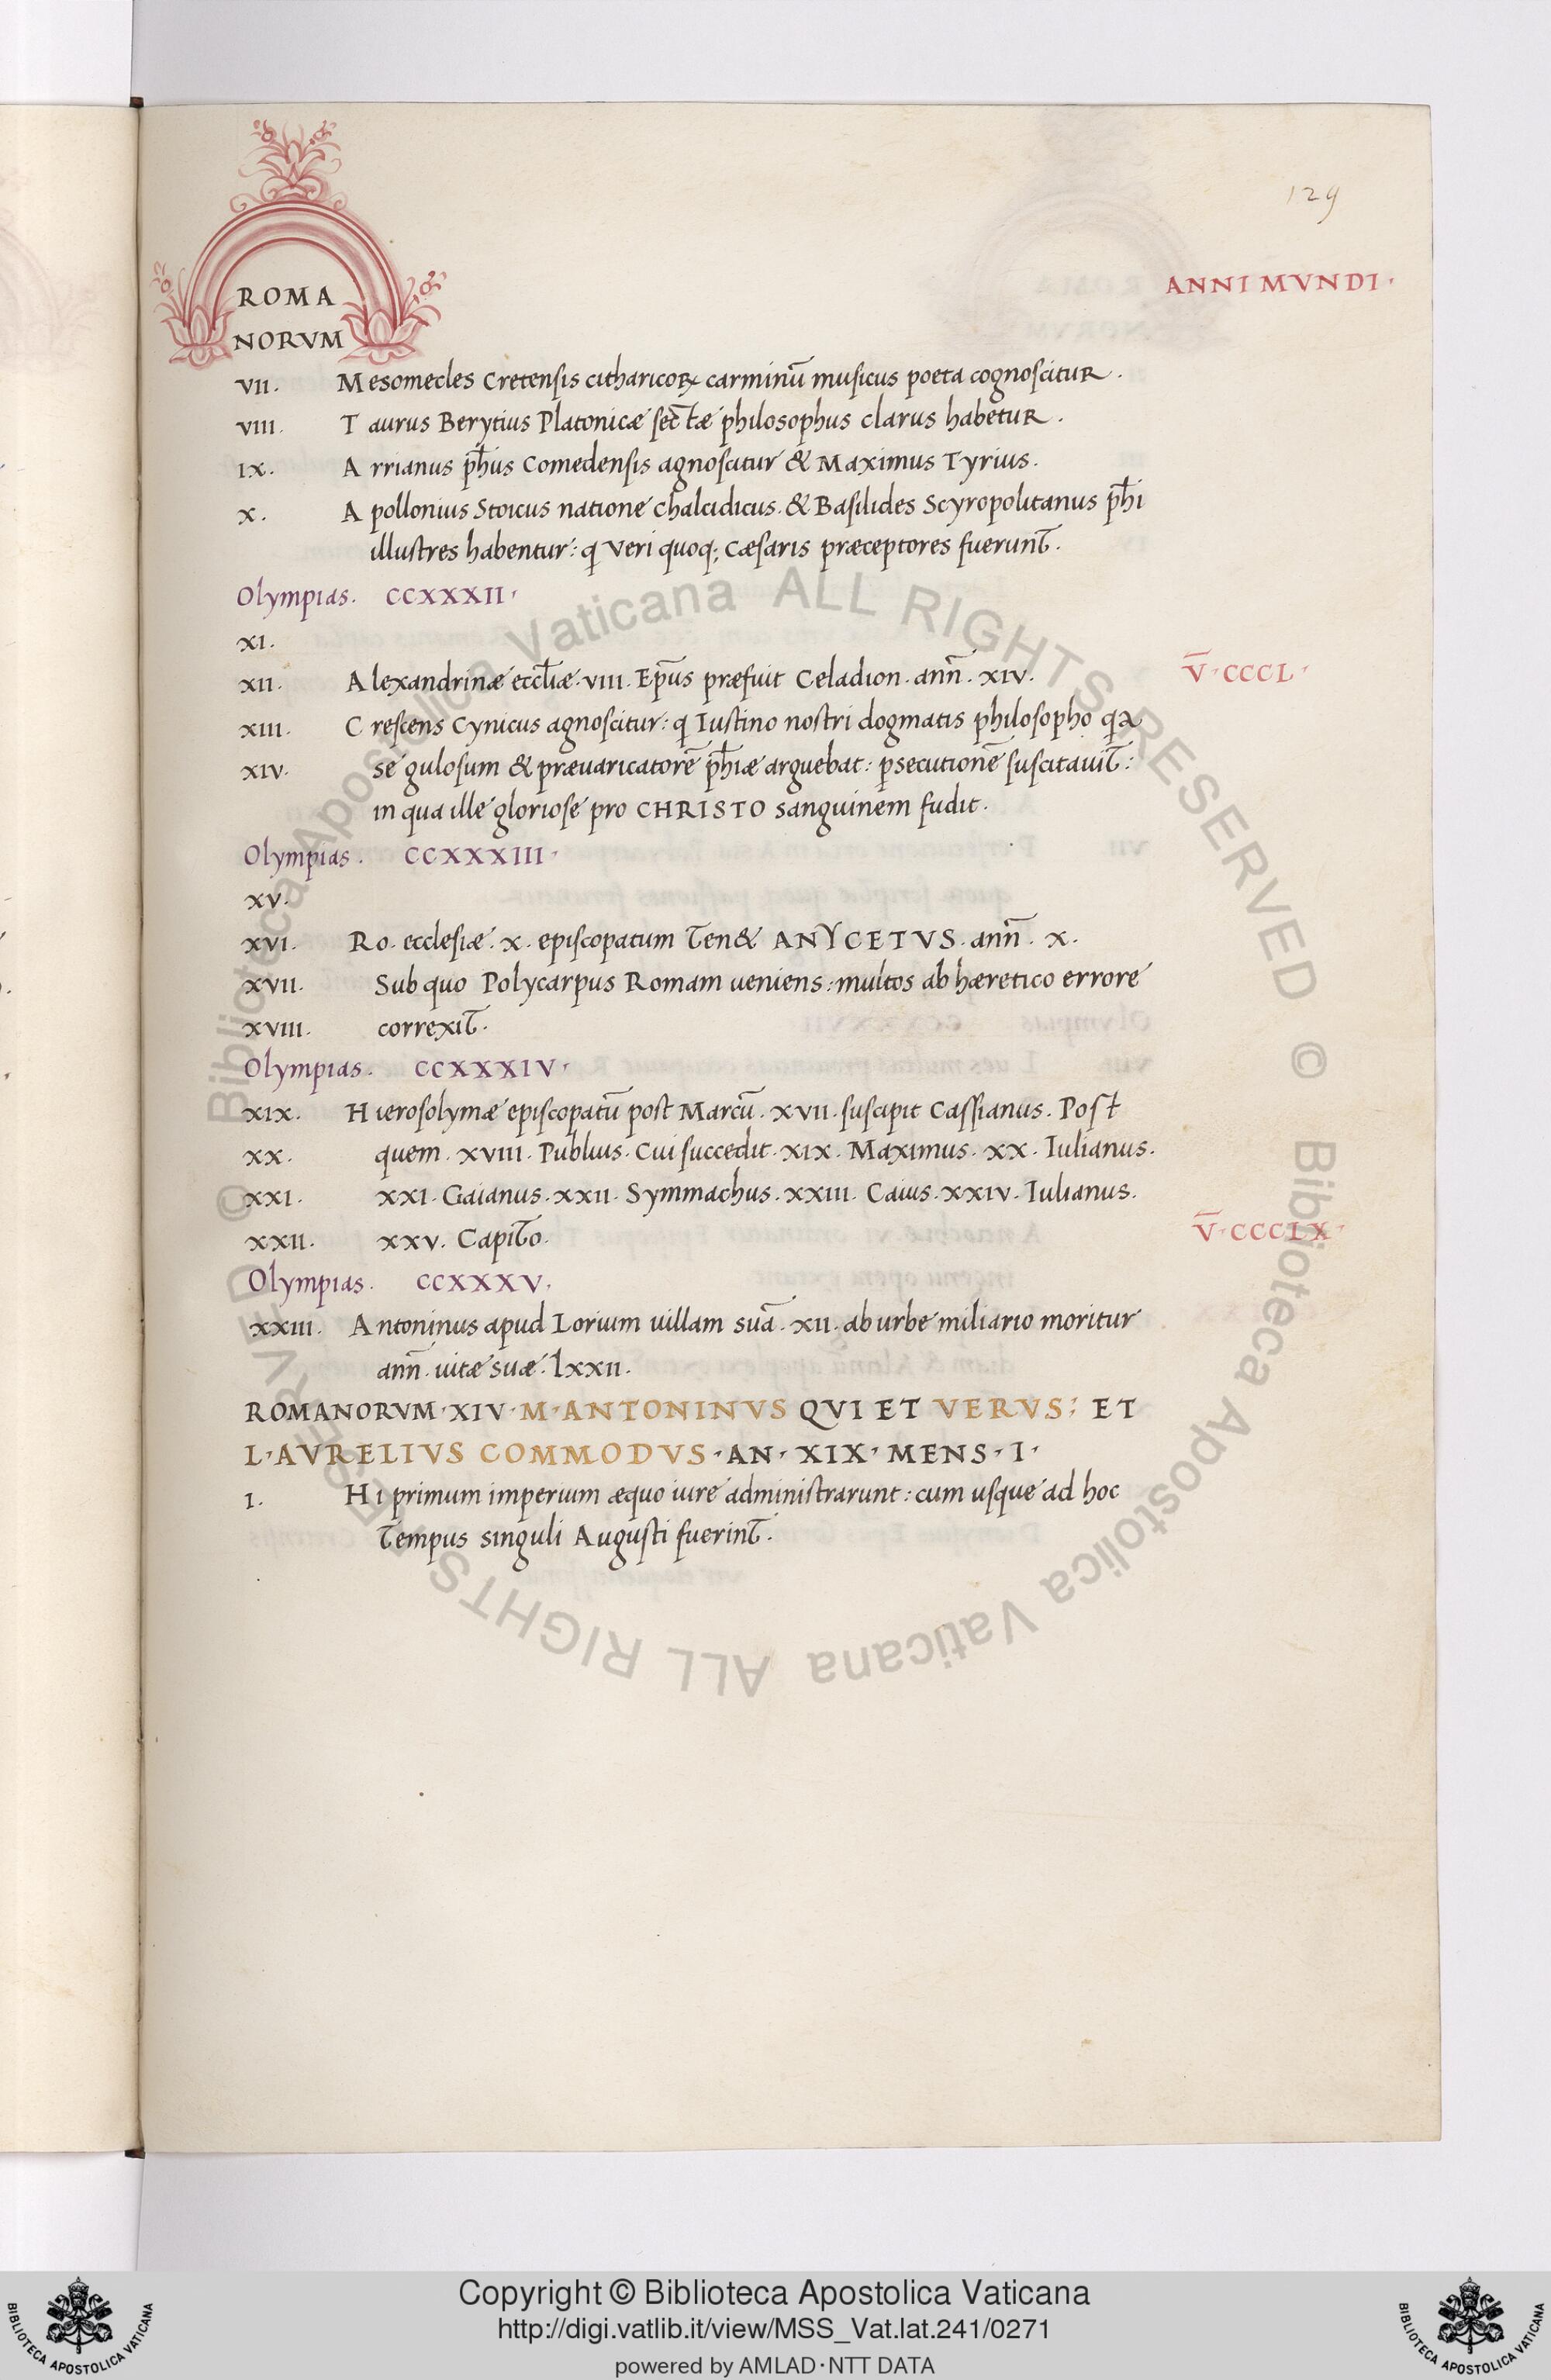 129
ROMA
NORVM
ANNI MVNDI ·
VII. Mesomedes Cretensis citharicoꝝ carminū musicus poeta cognoscitur.
VIII. Taurus Berytius Platonicæ sectæ philosophus clarus habetur.
IX. Arrianus ph̄us Comedensis agnoscitur & Maximus Tyrius.
X. Apollonius Stoicus natione chalcidicus. & Basilides Scyropolitanus ph̄i
illustres habentur: q Veri quoq; Cæsaris præceptores fuerunt.
Olympias. CCXXXII·
XI.
XII. Alexandrinæ eccl̄iæ. VIII. Ep̄us præfuit Celadion. ann̄. XIV. V̄·CCCL·
XIII. Crescens Cynicus agnoscitur: q Iustino nostri dogmatis philosopho qa
XIV. se gulosum & præuaricatorē ph̄iæ arguebat: psecutionē suscitauit:
in qua ille gloriose pro CHRISTO sanguinem fudit.
Olympias. CCXXXIII·
XV.
XVI. Ro. ecclesiæ. X. episcopatum ten& ANYCETVS. ann̄. X.
XVII. Sub quo Polycarpus Romam ueniens: multos ab hæretico errore
XVIII. correxit.
Olympias. CCXXXIV·
XIX. Hierosolymæ episcopatū post Marcū. XVII. suscipit Cassianus. Post
XX. quem. XVIII. Publius. Cui succedit. XIX. Maximus. XX. Iulianus.
XXI. XXI. Gaianus. XXII. Symmachus. XXIII. Caius. XXIV. Iulianus.
XXII. XXV. Capito. V̄·CCCLX·
Olympias. CCXXXV.
XXIII. Antoninus apud Lorium uillam suā. XII. ab urbe miliario moritur
ann̄. uitæ suæ. lxxii.
ROMANORVM·XIV·M·ANTONINVS QVI ET VERVS: ET
L·AVRELIVS COMMODVS·AN·XIX·MENS·I·
I. Hi primum imperium æquo iure administrarunt: cum usque ad hoc
tempus singuli Augusti fuerint.
© Biblioteca Apostolica Vaticana ALL RIGHTS RESERVED © Biblioteca Apostolica Vaticana ALL RIGHTS RESERVED
Copyright © Biblioteca Apostolica Vaticana
http://digi.vatlib.it/view/MSS_Vat.lat.241/0271
powered by AMLAD·NTT DATA
BIBLIOTECA APOSTOLICA VATICANA
BIBLIOTECA APOSTOLICA VATICANA